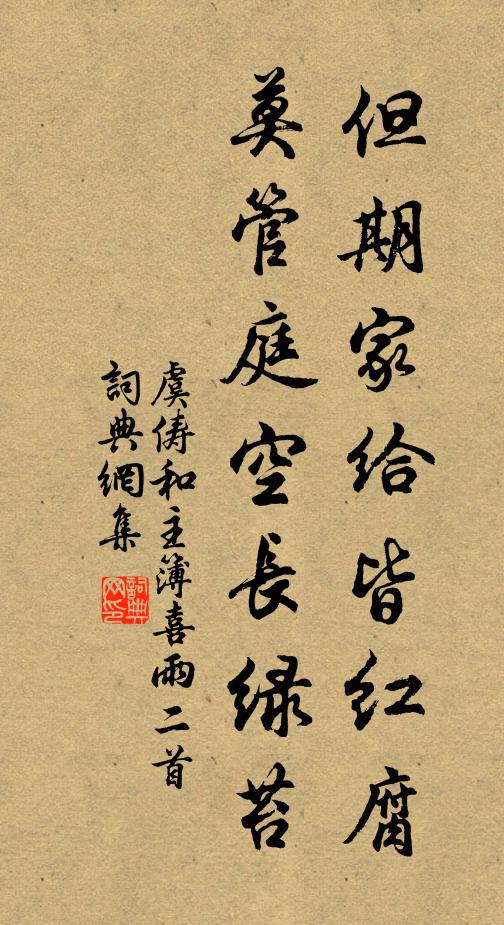 但期家给皆红腐
莫管庭空長绿苔
虞俦和主簿喜雨二首
詞典網集
詞典網印